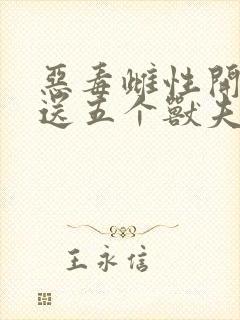 惡毒雌性開
送五个獸夫
王永信